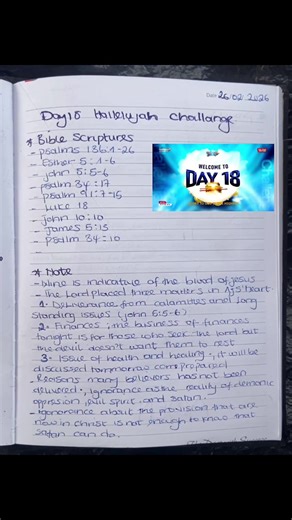 Date 26.02.2026
Day18 Hallelujah challange
* Bible Scriptures
- psalms 136:1-26
- Esther 5:1-6
- john 5:5-6
- psalm 34:17
- psalm 91:7-15
- Luke 18
- john 10:10
- james 5:15
- psalm 34:10
WELCOME TO
DAY 18
* Note
- wine is indicative of the blood of jesus
- the Lord placed three matters in heart
1. Deliverance from calamities and long
standing issues (john 5:5-6)
2. Finances, the business of finances
tonight is for those who seek the lord but
the devil doesn't want them to rest
3. Issue of health and healing, it will be
discussed tommorrow come prepared
- Reasons many believers has not been
delivered: ignorance as the reality of demonic
oppression, evil spirit, and satan.
- Ignorance about the provision that are
now in Christ is not enough to know that
satan can do.